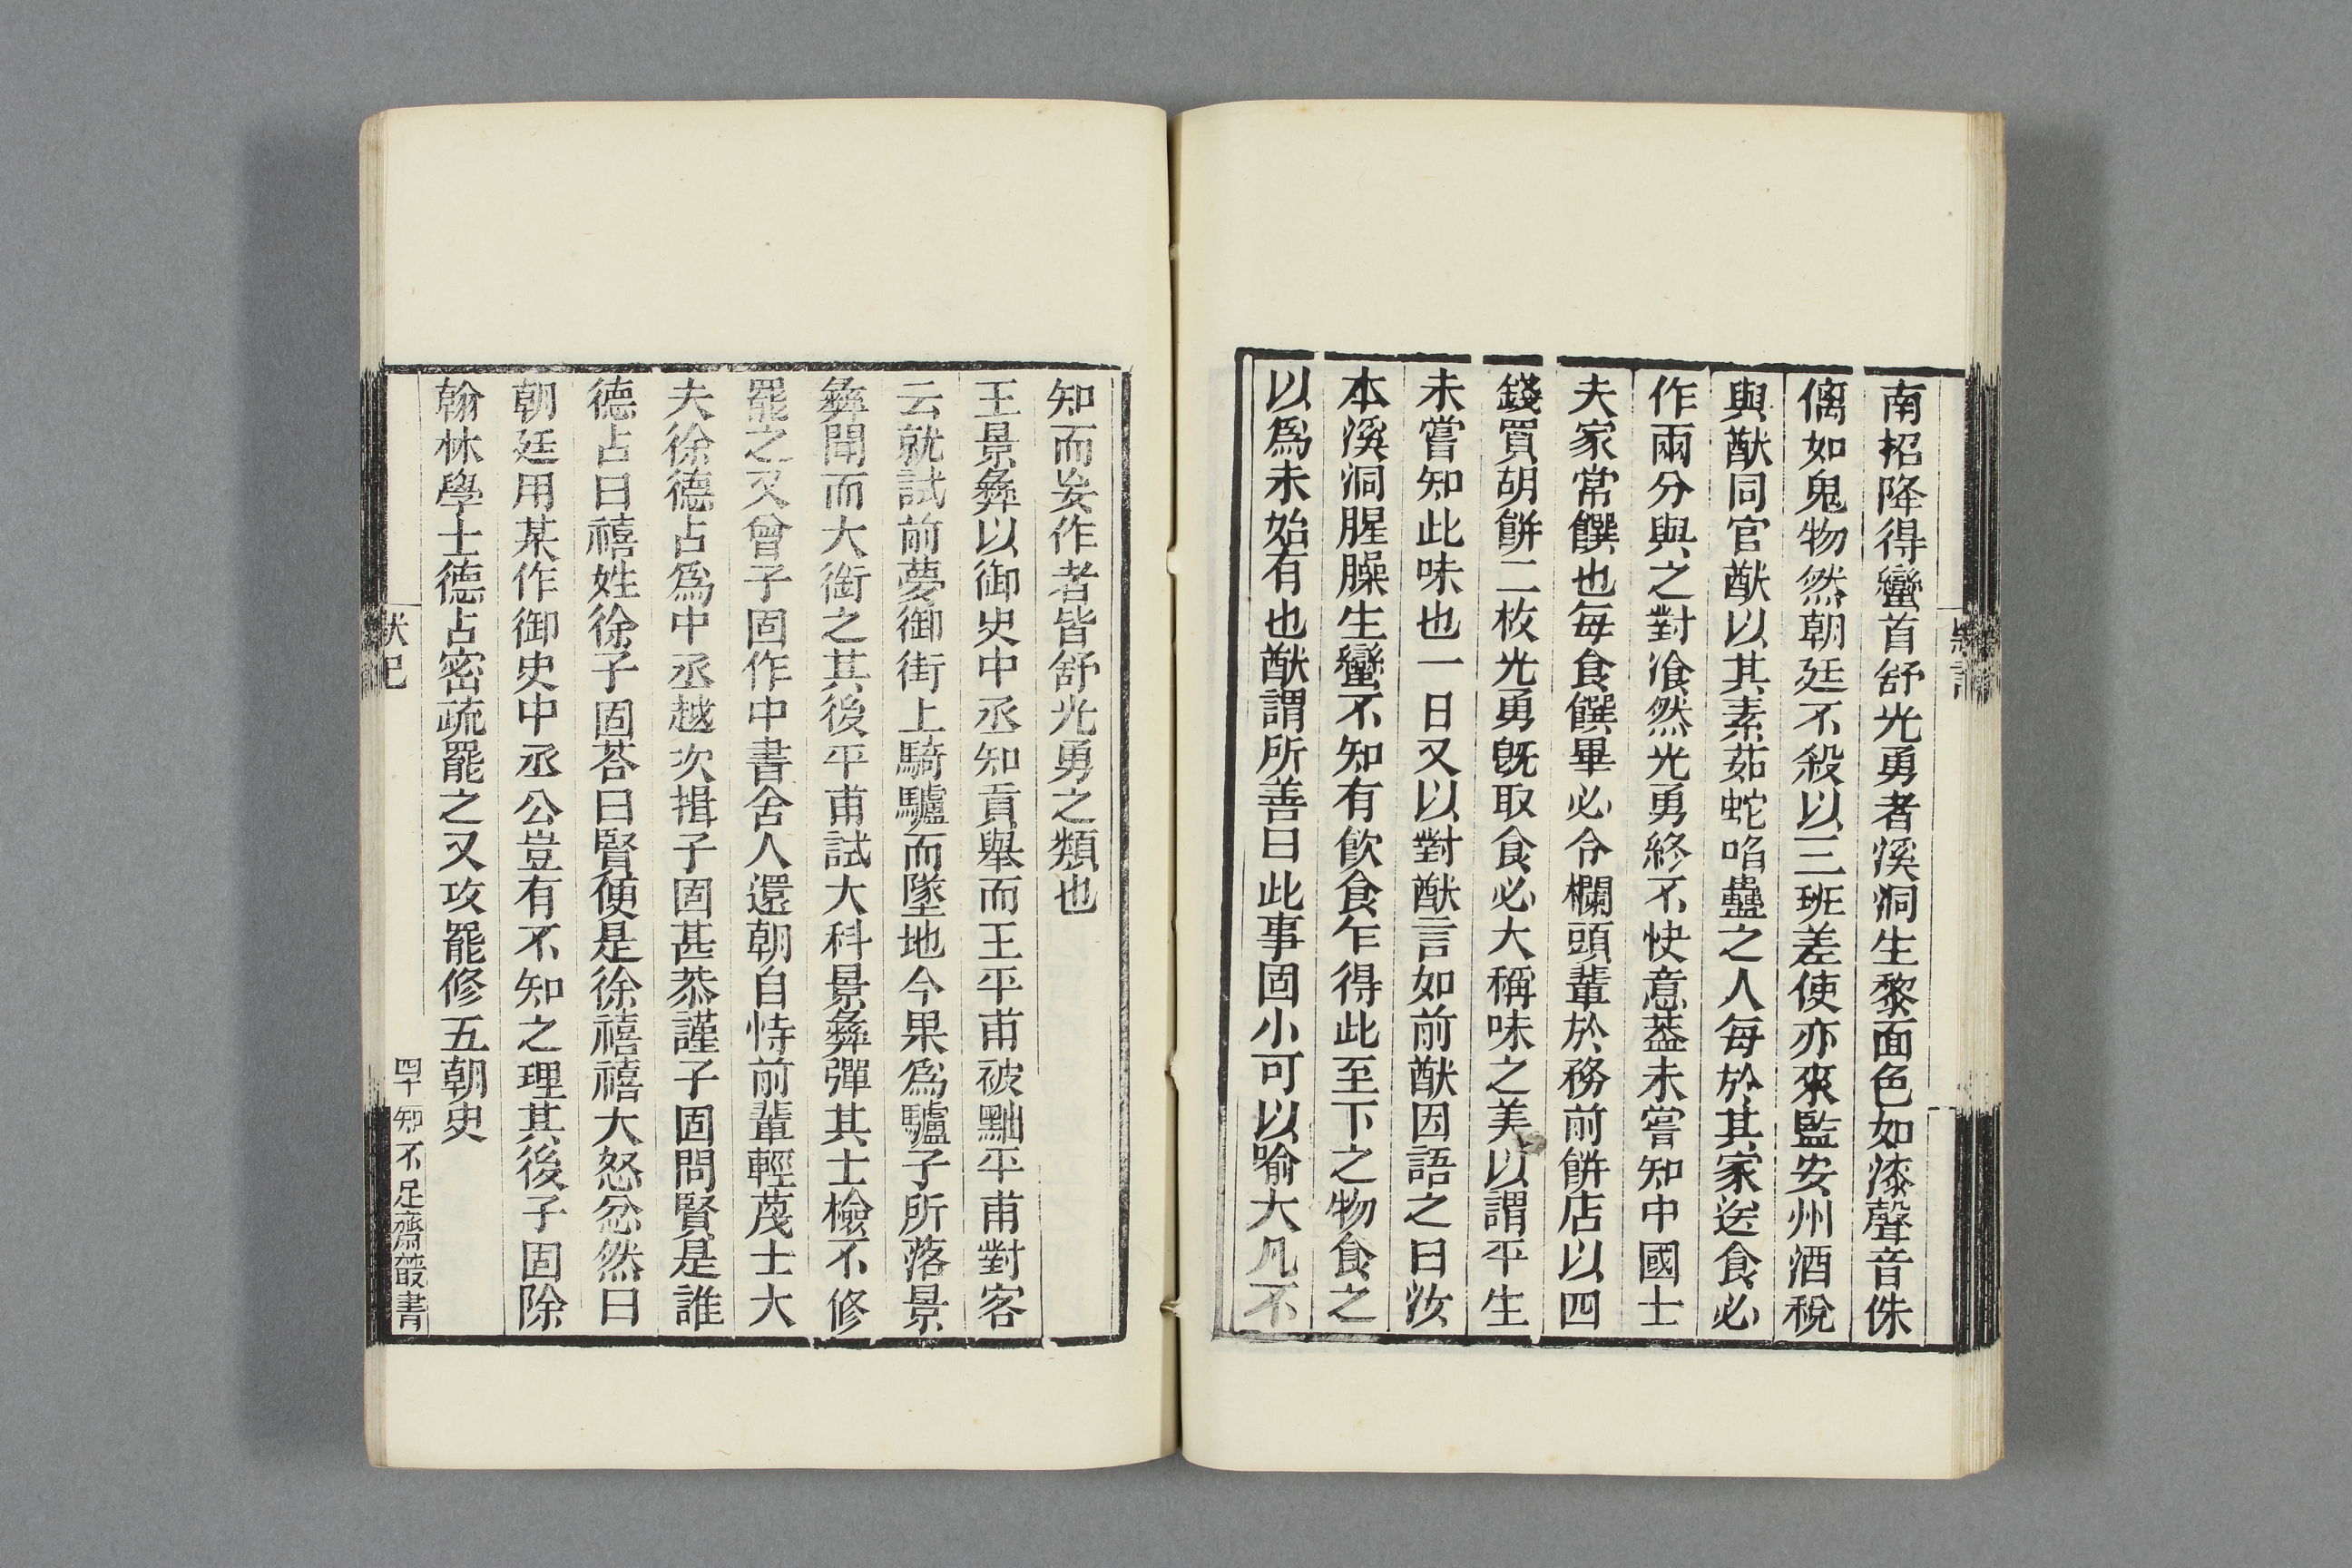 南招降得蠻首舒光勇者溪洞生黎面色如漆聲音侏
偊如鬼物然朝廷不殺以三班差使亦來監安州酒稅
與猷同官猷以其素茹蛇啗蠱之人每於其家送食必
作兩分與之對飡然光勇終不快意葢未嘗知中國士
夫家常饌也每食饌畢必令欄頭輩於務前餅店以四
錢買胡餅二枚光勇旣取食必大稱味之美以謂平生
未嘗知此味也一日又以對猷言如前猷因語之曰汝
本溪洞腥臊生蠻不知有飲食乍得此至下之物食之
以爲未始有也猷謂所善曰此事固小可以喻大凡不
知而妄作者皆舒光勇之類也
王景彝以御史中丞知貢舉而王平甫被黜平甫對客
云就試前夢御街上騎驢而墜地今果爲驢子所落景
彝聞而大銜之其後平甫試大科景彝彈其士檢不修
罷之又曾子固作中書舍人還朝自恃前輩輕蔑士大
夫徐德占爲中丞越次揖子固甚恭謹子固問賢是誰
德占曰禧姓徐子固荅曰賢便是徐禧禧大怒忿然曰
朝廷用某作御史中丞公豈有不知之理其後子固除
翰林學士德占密疏罷之又攻罷修五朝史
四十 知不足齋叢書